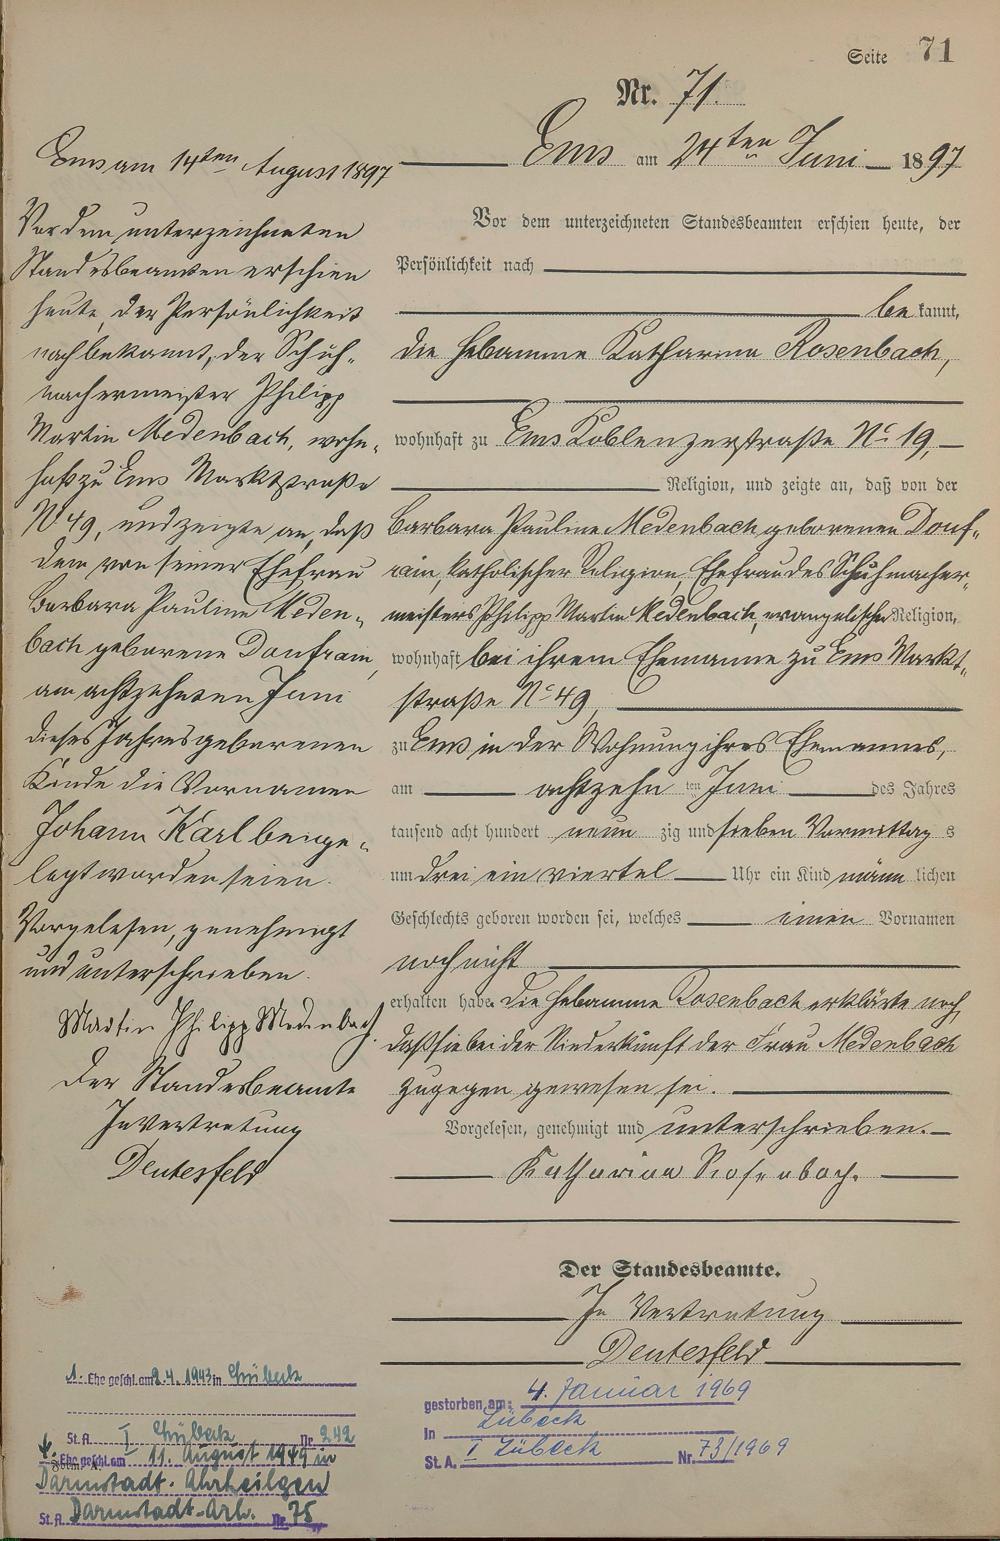 Seite 71
Nr. 71.
Ems am 24ten Juni 1897
Vor dem unterzeichneten Standesbeamten erschien heute, der
Persönlichkeit nach
be kannt,
die Hebamme Katharina Rosenbach,
wohnhaft zu Ems Koblenzerstraße No 19,
Religion, und zeigte an, daß von der
Barbara Pauline Medenbach geborenen Donf-
rain, katholischer Religion Ehefrau des Schuhmacher-
meisters Philipp Martin Medenbach, evangelischer Religion,
wohnhaft bei ihrem Ehemanne zu Ems Markt-
straße No 49,
zu Ems in der Wohnung ihres Ehemannes,
am achtzehn ten Juni des Jahres
tausend acht hundert neun zig und sieben Vormittag s
um drei ein viertel Uhr ein Kind männ lichen
Geschlechts geboren worden sei, welches einen Vornamen
noch nicht
erhalten habe. Die Hebamme Rosenbach erklärte noch,
daß sie bei der Niederkunft der Frau Medenbach
zugegen gewesen sei.
Vorgelesen, genehmigt und unterschrieben.
Katharina Rosenbach.
Der Standesbeamte.
In Vertretung
Deutesfeld
Ems am 14ten August 1897
Vor dem unterzeichneten
Standesbeamten erschien
heute, der Persönlichkeit
nach bekannt, der Schuh-
machermeister Philipp
Martin Medenbach, wohn-
haft zu Ems Marktstraße
No 49, und zeigte an, daß
dem von seiner Ehefrau
Barbara Pauline Meden-
bach geborene Donfrain,
am achtzehnten Juni
dieses Jahres geborenen
Kinde die Vornamen
Johann Karl beige-
legt worden seien.
Vorgelesen, genehmigt
und unterschrieben.
Martin Philipp Medenbach.
Der Standesbeamte
In Vertretung
Deutesfeld
1. Ehe geschl. am 9.4.1943 in Lübeck
St.A. I Lübeck Nr. 242
Ehe geschl. am 11. August 1949 in
Darmstadt-Arheilgen
St.A. Darmstadt-Arh. Nr. 75
gestorben am: 4. Januar 1969
In Lübeck
St.A. I Lübeck Nr. 73/1969